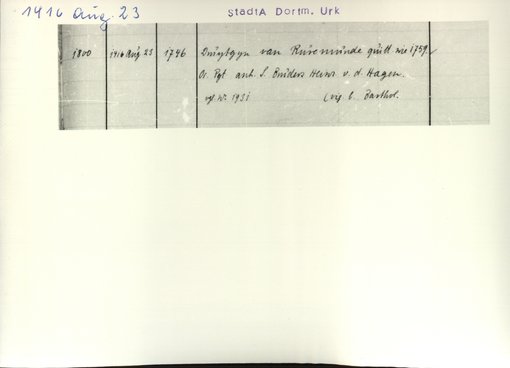 1416 Aug. 23
StadtA Dortm. Urk
1800 1416 Aug. 23 1746 van Ruremunde quitt. wie 1759.
Or. Pgt. anh. S. Bruders Heinr. v. d. Hagen.
vgl. Nr. 1931 (vig. b. Barthol.